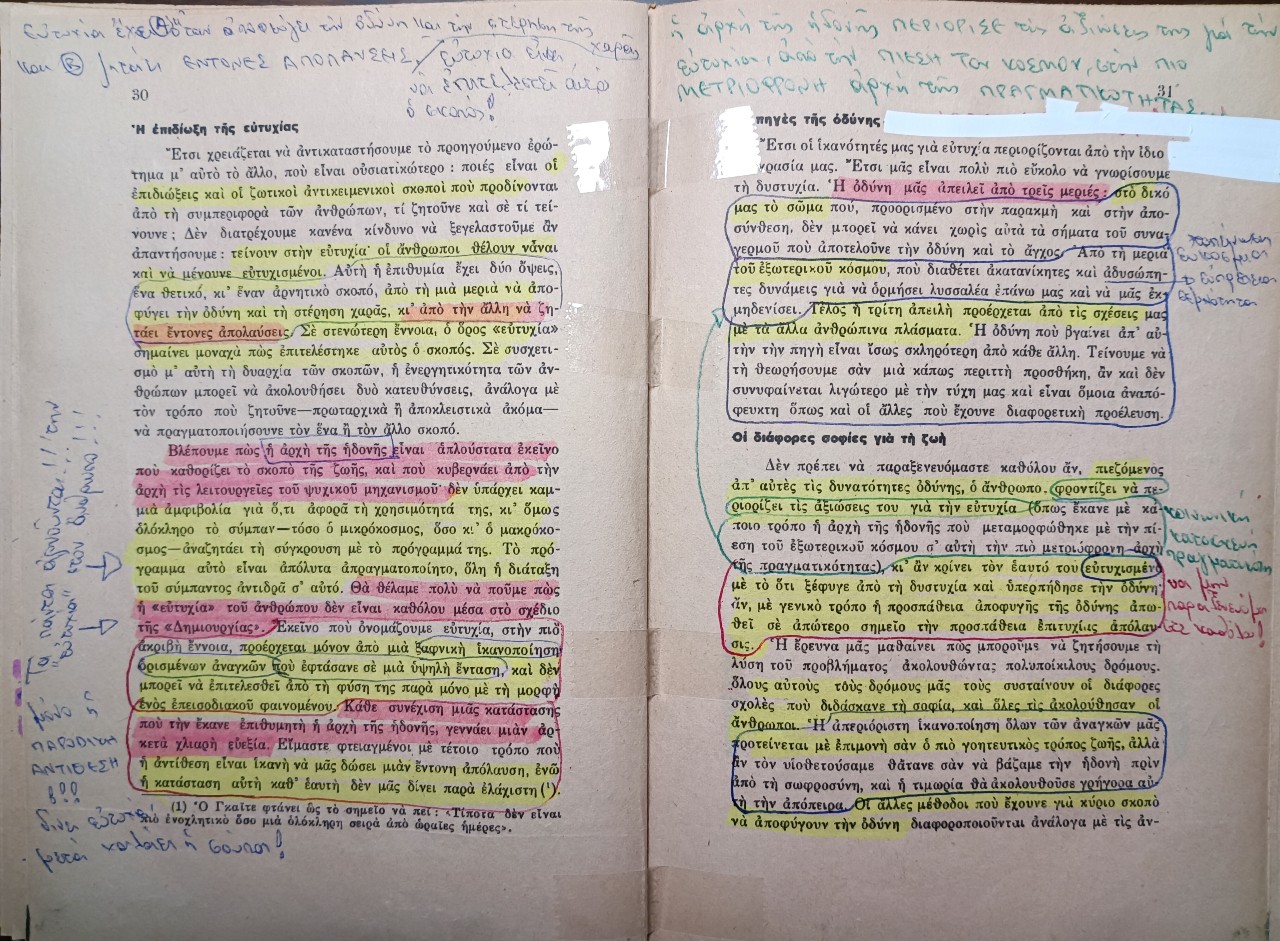 εὐτυχία ἔχει Α ὅταν ἀποφεύγει τὴν ὀδύνη καὶ τὴν στέρηση τῆς χαρᾶς
και Β ζητάει ΕΝΤΟΝΕΣ ΑΠΟΛΑΥΣΕΙΣ, εὐτυχία εἶναι
νὰ ἐπιτελεστεῖ αὐτὸ
ὁ σκοπός!
30
Ἡ ἐπιδίωξη τῆς εὐτυχίας
Ἔτσι χρειάζεται νὰ ἀντικαταστήσουμε τὸ προηγούμενο ἐρώ-
τημα μ' αὐτὸ τὸ ἄλλο, ποὺ εἶναι οὐσιατικώτερο : ποιές εἶναι οἱ
ἐπιδιώξεις καὶ οἱ ζωτικοὶ ἀντικειμενικοὶ σκοποὶ ποὺ προδίνονται
ἀπὸ τὴ συμπεριφορὰ τῶν ἀνθρώπων, τί ζητοῦνε καὶ σὲ τί τεί-
νουνε ; Δὲν διατρέχουμε κανένα κίνδυνο νὰ ξεγελαστοῦμε ἂν
ἀπαντήσουμε : τείνουν στὴν εὐτυχία· οἱ ἄνθρωποι θέλουν νἆναι
καὶ νὰ μένουνε εὐτυχισμένοι. Αὐτὴ ἡ ἐπιθυμία ἔχει δύο ὄψεις,
ἕνα θετικό, κι' ἕναν ἀρνητικὸ σκοπό, ἀπὸ τὴ μιὰ μεριὰ νὰ ἀπο-
φύγει τὴν ὀδύνη καὶ τὴ στέρηση χαρᾶς, κι' ἀπὸ τὴν ἄλλη νὰ ζη-
τάει ἔντονες ἀπολαύσεις. Σὲ στενώτερη ἔννοια, ὁ ὅρος «εὐτυχία»
σημαίνει μοναχὰ πὼς ἐπιτελέστηκε αὐτὸς ὁ σκοπός. Σὲ συσχετι-
σμὸ μ' αὐτὴ τὴ δυαρχία τῶν σκοπῶν, ἡ ἐνεργητικότητα τῶν ἀν-
θρώπων μπορεῖ νὰ ἀκολουθήσει δυὸ κατευθύνσεις, ἀνάλογα μὲ
τὸν τρόπο ποὺ ζητοῦνε—πρωταρχικὰ ἢ ἀποκλειστικὰ ἀκόμα—
νὰ πραγματοποιήσουνε τὸν ἕνα ἢ τὸν ἄλλο σκοπό.
Βλέπουμε πὼς ἡ ἀρχὴ τῆς ἡδονῆς εἶναι ἁπλούστατα ἐκεῖνο
ποὺ καθορίζει τὸ σκοπὸ τῆς ζωῆς, καὶ ποὺ κυβερνάει ἀπὸ τὴν
ἀρχὴ τὶς λειτουργεῖες τοῦ ψυχικοῦ μηχανισμοῦ· δὲν ὑπάρχει καμ-
μιὰ ἀμφιβολία γιὰ ὅ,τι ἀφορᾶ τὴ χρησιμότητά της, κι' ὅμως
ὁλόκληρο τὸ σύμπαν—τόσο ὁ μικρόκοσμος, ὅσο κι' ὁ μακρόκο-
σμος—ἀναζητάει τὴ σύγκρουση μὲ τὸ πρόγραμμά της. Τὸ πρό-
γραμμα αὐτὸ εἶναι ἀπόλυτα ἀπραγματοποίητο, ὅλη ἡ διάταξη
τοῦ σύμπαντος ἀντιδρᾶ σ' αὐτό. Θὰ θέλαμε πολὺ νὰ ποῦμε πὼς
ἡ «εὐτυχία» τοῦ ἀνθρώπου δὲν εἶναι καθόλου μέσα στὸ σχέδιο
τῆς «Δημιουργίας». Ἐκεῖνο ποὺ ὀνομάζουμε εὐτυχία, στὴν πιὸ
ἀκριβῆ ἔννοια, προέρχεται μόνον ἀπὸ μιὰ ξαφνικὴ ἱκανοποίηση
ὁρισμένων ἀναγκῶν ποὺ ἐφτάσανε σὲ μιὰ ὑψηλὴ ἔνταση, καὶ δὲν
μπορεῖ νὰ ἐπιτελεσθεῖ ἀπὸ τὴ φύση της παρὰ μόνο μὲ τὴ μορφὴ
ἑνὸς ἐπεισοδιακοῦ φαινομένου. Κάθε συνέχιση μιᾶς κατάστασης
ποὺ τὴν ἔκανε ἐπιθυμητὴ ἡ ἀρχὴ τῆς ἡδονῆς, γεννάει μιὰν ἀρ-
κετὰ χλιαρὴ εὐεξία. Εἴμαστε φτειαγμένοι μὲ τέτοιο τρόπο ποὺ
ἡ ἀντίθεση εἶναι ἱκανὴ νὰ μᾶς δώσει μιὰν ἔντονη ἀπόλαυση, ἐνῶ
ἡ κατάσταση αὐτὴ καθ' ἑαυτὴ δὲν μᾶς δίνει παρὰ ἐλάχιστη (¹).
(1) Ὁ Γκαῖτε φτάνει ὣς τὸ σημεῖο νὰ πεῖ : «Τίποτα δὲν εἶναι
πιὸ ἐνοχλητικὸ ὅσο μιὰ ὁλόκληρη σειρὰ ἀπὸ ὡραῖες ἡμέρες».
Τὰ πάντα
"εὐτυχία" στὸν ἄνθρωπο!!!
μόνο ἡ
ΠΑΡΟΔΙΚΗ
ΑΝΤΙΘΕΣΗ
δίνει εὐτυχία
μετὰ ἡ σούπα!
ἡ ἀρχὴ τῆς ἡδονῆς ΠΕΡΙΟΡΙΣΕ τὶς ἀξιώσεις της γιὰ τὴν
εὐτυχία, ἀπὸ τὴν ΠΙΕΣΗ ΤΟΥ ΚΟΣΜΟΥ, στὴν πιο
ΜΕΤΡΙΟΦΡΟΝΗ ἀρχὴ τῆς ΠΡΑΓΜΑΤΙΚΟΤΗΤΑΣ....
31
πηγὲς τῆς ὀδύνης
Ἔτσι οἱ ἱκανότητές μας γιὰ εὐτυχία περιορίζονται ἀπὸ τὴν ἴδιο
κρασία μας. Ἔτσι μᾶς εἶναι πολὺ πιὸ εὔκολο νὰ γνωρίσουμε
τὴ δυστυχία. Ἡ ὀδύνη μᾶς ἀπειλεῖ ἀπὸ τρεῖς μεριές : στὸ δικό
μας τὸ σῶμα πού, προορισμένο στὴν παρακμὴ καὶ στὴν ἀπο-
σύνθεση, δὲν μπορεῖ νὰ κάνει χωρὶς αὐτὰ τὰ σήματα τοῦ συνα
γερμοῦ ποὺ ἀποτελοῦνε τὴν ὀδύνη καὶ τὸ ἄγχος. Ἀπὸ τὴ μεριὰ
τοῦ ἐξωτερικοῦ κόσμου, ποὺ διαθέτει ἀκατανίκητες καὶ ἀδυσώπη-
τες δυνάμεις γιὰ νὰ ὁρμήσει λυσσαλέα ἐπάνω μας καὶ νὰ μᾶς ἐκ-
μηδενίσει. Τέλος ἡ τρίτη ἀπειλὴ προέρχεται ἀπὸ τὶς σχέσεις μας
μὲ τὰ ἄλλα ἀνθρώπινα πλάσματα. Ἡ ὀδύνη ποὺ βγαίνει ἀπ' αὐ-
τὴν τὴν πηγὴ εἶναι ἴσως σκληρότερη ἀπὸ κάθε ἄλλη. Τείνουμε νὰ
τὴ θεωρήσουμε σὰν μιὰ κάπως περιττὴ προσθήκη, ἂν καὶ δὲν
συνυφαίνεται λιγώτερο μὲ τὴν τύχη μας καὶ εἶναι ὅμοια ἀναπό-
φευκτη ὅπως καὶ οἱ ἄλλες ποὺ ἔχουνε διαφορετικὴ προέλευση.
Οἱ διάφορες σοφίες γιὰ τὴ ζωὴ
Δὲν πρέπει νὰ παραξενευόμαστε καθόλου ἄν, πιεζόμενος
ἀπ' αὐτὲς τὶς δυνατότητες ὀδύνης, ὁ ἄνθρωπο. φροντίζει νὰ πε-
ριορίζει τὶς ἀξιώσεις του γιὰ τὴν εὐτυχία (ὅπως ἔκανε μὲ κά-
ποιο τρόπο ἡ ἀρχὴ τῆς ἡδονῆς ποὺ μεταμορφώθηκε μὲ τὴν πί-
εση τοῦ ἐξωτερικοῦ κόσμου σ' αὐτὴ τὴν πιὸ μετριόφρονη ἀρχὴ
τῆς πραγματικότητας), κι' ἂν κρίνει τὸν ἑαυτό του εὐτυχισμένο
μὲ τὸ ὅτι ξέφυγε ἀπὸ τὴ δυστυχία καὶ ὑπερπήδησε τὴν ὀδύνη
ἄν, μὲ γενικὸ τρόπο ἡ προσπάθεια ἀποφυγῆς τῆς ὀδύνης ἀπω-
θεῖ σὲ ἀπώτερο σημεῖο τὴν προσπάθεια ἐπιτυχίας ἀπόλαυ-
σις. Ἡ ἔρευνα μᾶς μαθαίνει πὼς μποροῦμε νὰ ζητήσουμε τὴ
λύση τοῦ προβλήματος ἀκολουθώντας πολυποίκιλους δρόμους.
ὅλους αὐτοὺς τοὺς δρόμους μᾶς τοὺς συσταίνουν οἱ διάφορες
σχολὲς ποὺ διδάσκανε τὴ σοφία, καὶ ὅλες τὶς ἀκολούθησαν οἱ
ἄνθρωποι. Ἡ ἀπεριόριστη ἱκανοποίηση ὅλων τῶν ἀναγκῶν μᾶς
προτείνεται μὲ ἐπιμονὴ σὰν ὁ πιὸ γοητευτικὸς τρόπος ζωῆς, ἀλλὰ
ἂν τὸν υἱοθετούσαμε θἄτανε σὰν νὰ βάζαμε τὴν ἡδονὴ πρὶν
ἀπὸ τὴ σωφροσύνη, καὶ ἡ τιμωρία θὰ ἀκολουθοῦσε γρήγορα αὐ
τὴ τὴν ἀπόπειρα. Οἱ ἄλλες μέθοδοι ποὺ ἔχουνε γιὰ κύριο σκοπὸ
νὰ ἀποφύγουν τὴν ὀδύνη διαφοροποιοῦνται ἀνάλογα μὲ τὶς ἀν-
κοινωνικὴ
κατασκευὴ
πραγματικότη
νὰ μὴν
παραξενευόμα
στε καθόλου!